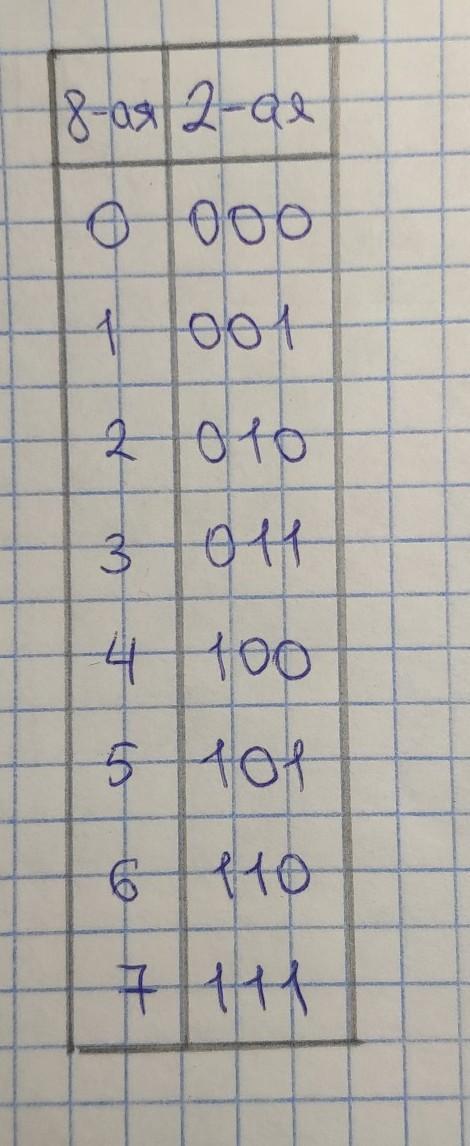 8-ая 2-ая
0 000
1 001
2 010
3 011
4 100
5 101
6 110
7 111